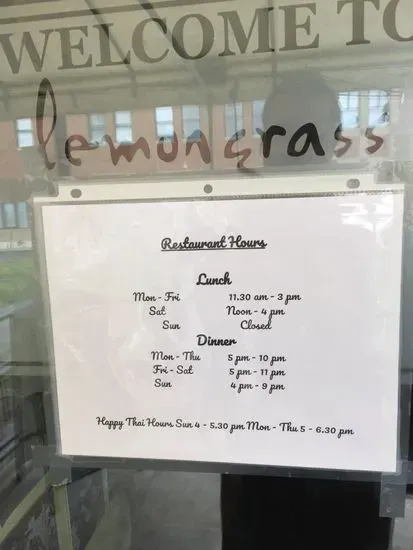 WELCOME TO
lemongrass
Restaurant Hours
Lunch
Mon - Fri 11.30 am - 3 pm
Sat Noon - 4 pm
Sun Closed
Dinner
Mon - Thu 5 pm - 10 pm
Fri - Sat 5 pm - 11 pm
Sun 4 pm - 9 pm
Happy Thai Hours Sun 4 - 5.30 pm Mon - Thu 5 - 6.30 pm